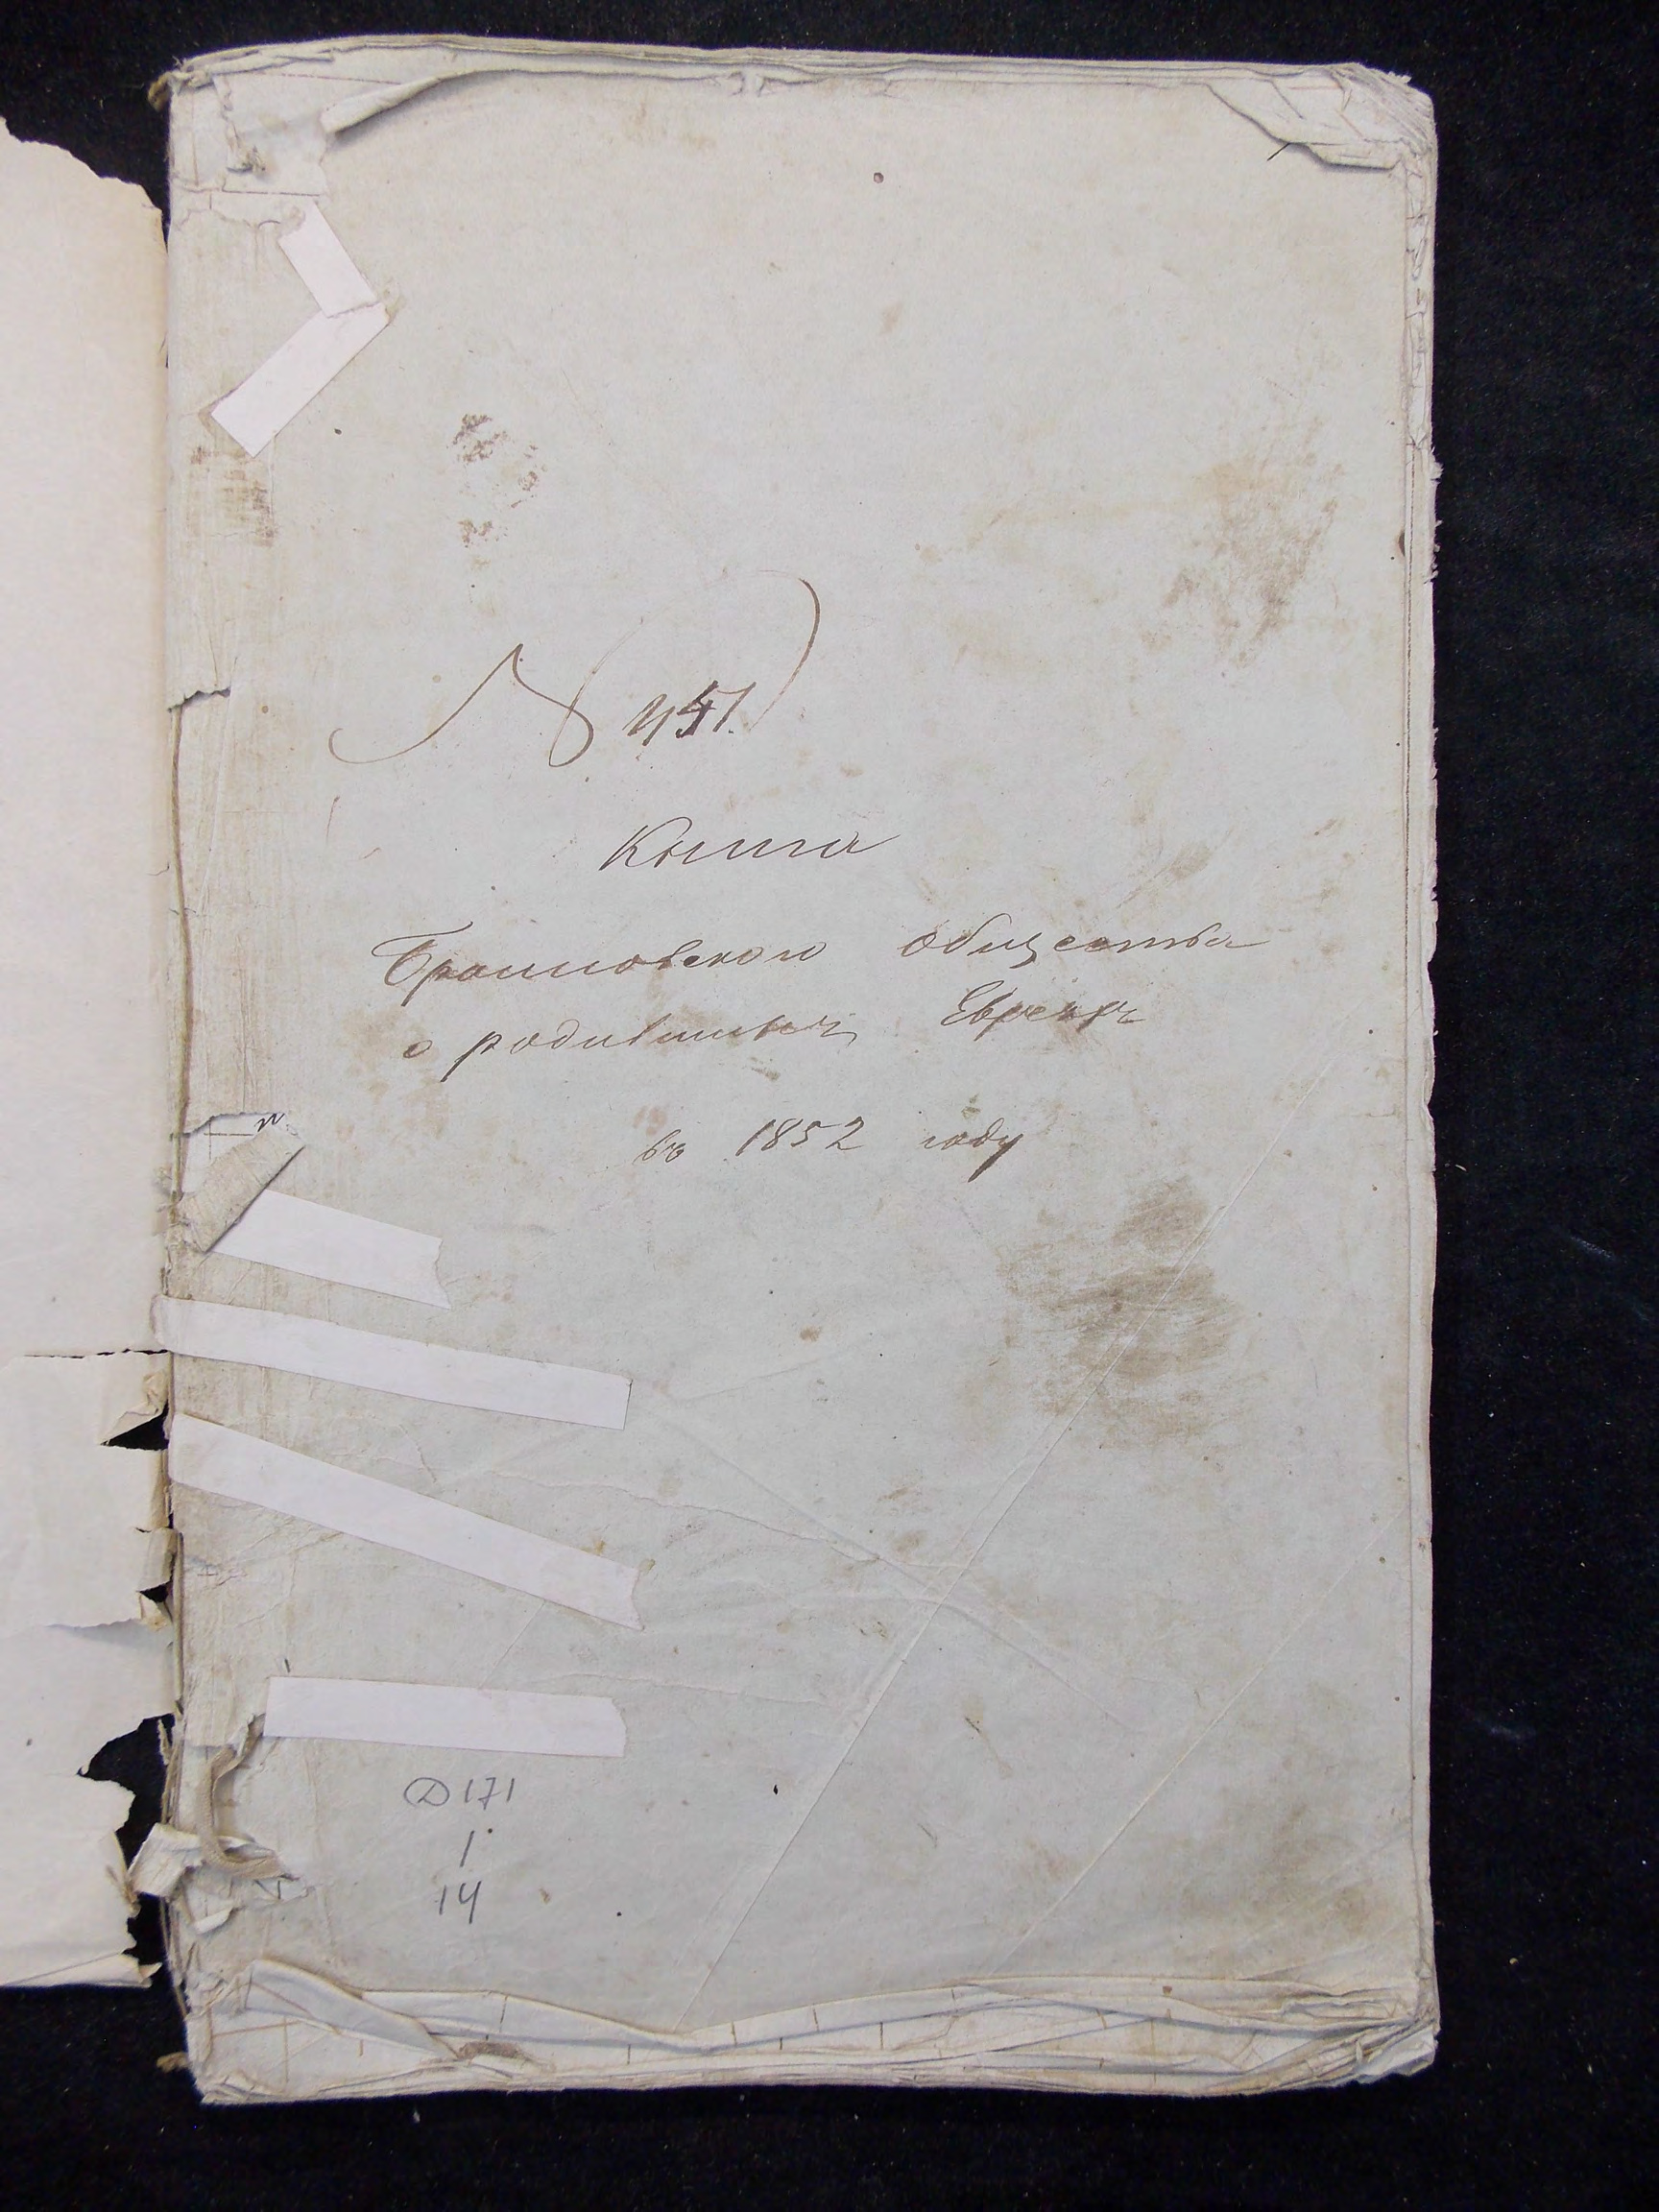 № 451.
Книга
Браиловскаго общества
о родившихся Евреяхъ
въ 1852 году
Д 171
1
14